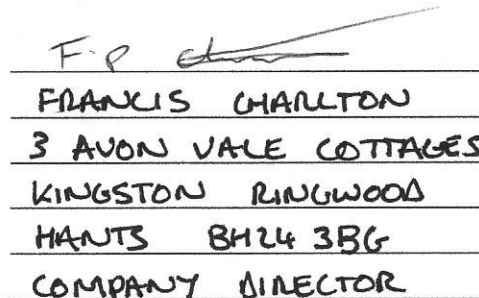 F.P
FRANCIS CHARLTON
3 AVON VALE COTTAGES
KINGSTON RINGWOOD
HANTS BH24 3BG
COMPANY DIRECTOR